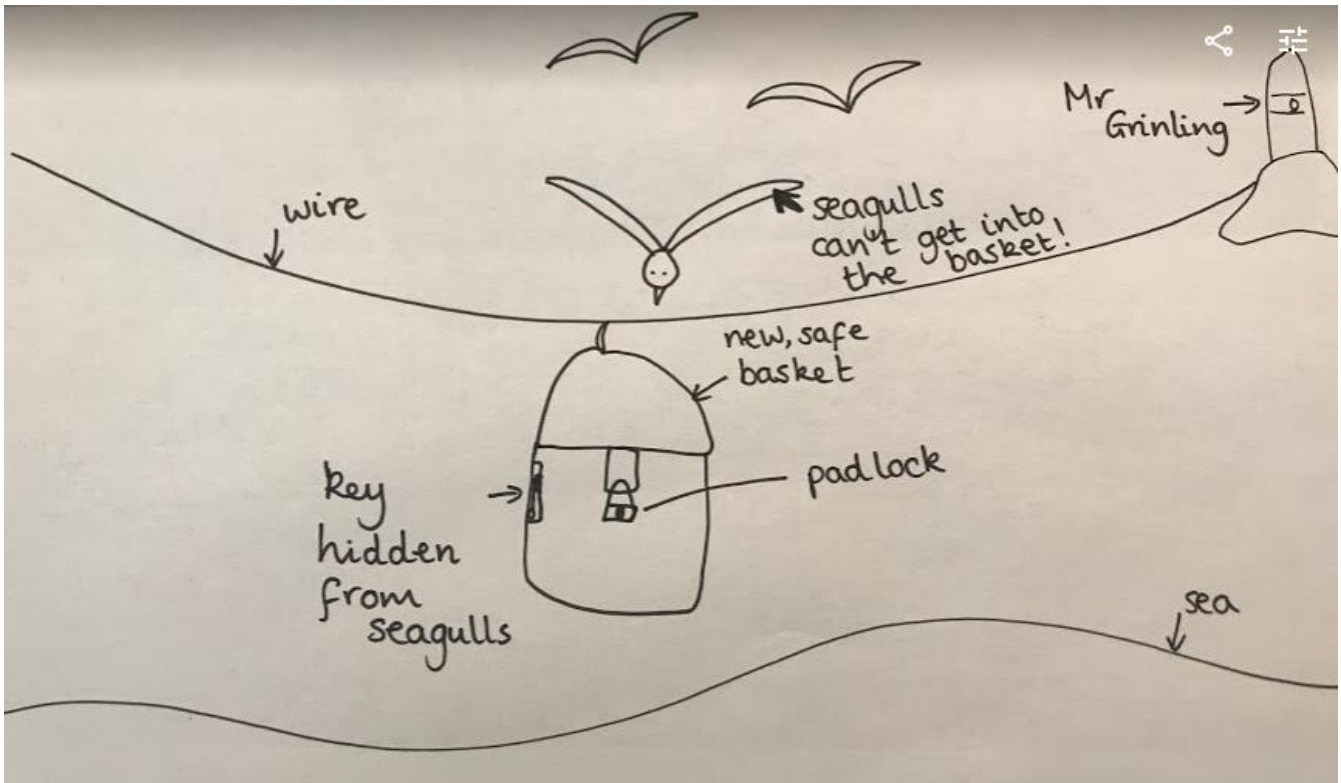 Mr
Grinling
wire
seagulls
can't get into
the basket!
new, safe
basket
key
hidden
from
seagulls
padlock
sea